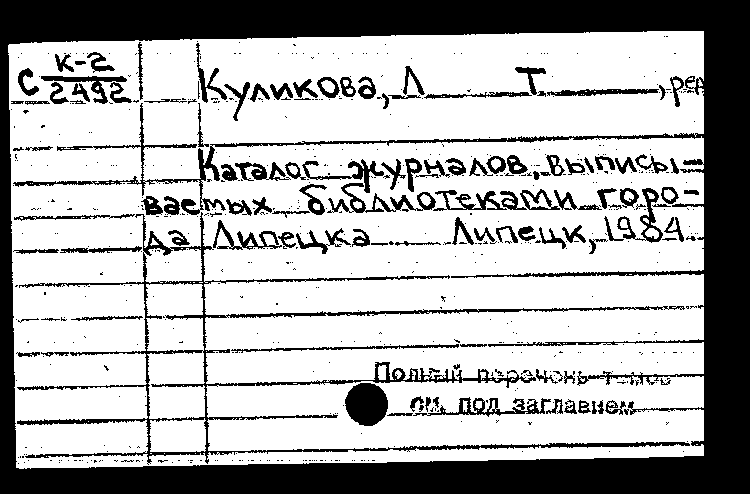 С К-2
2492
Куликова, Л Т , ред
Каталог журналов, выписы-
ваемых библиотеками горо-
да Липецка... Липецк, 1984.
Полный перечень томов
см. под заглавием